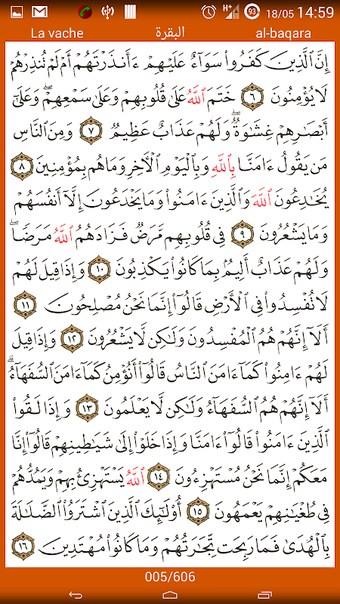 93 18/05 14:59
La vache البقرة al-baqara
إِنَّ ٱلَّذِينَ كَفَرُوا۟ سَوَآءٌ عَلَيْهِمْ ءَأَنذَرْتَهُمْ أَمْ لَمْ تُنذِرْهُمْ
لَا يُؤْمِنُونَ ٦ خَتَمَ ٱللَّهُ عَلَىٰ قُلُوبِهِمْ وَعَلَىٰ سَمْعِهِمْ ۖ وَعَلَىٰٓ
أَبْصَـٰرِهِمْ غِشَـٰوَةٌ ۖ وَلَهُمْ عَذَابٌ عَظِيمٌ ٧ وَمِنَ ٱلنَّاسِ
مَن يَقُولُ ءَامَنَّا بِٱللَّهِ وَبِٱلْيَوْمِ ٱلْـَٔاخِرِ وَمَا هُم بِمُؤْمِنِينَ ٨
يُخَـٰدِعُونَ ٱللَّهَ وَٱلَّذِينَ ءَامَنُوا۟ وَمَا يَخْدَعُونَ إِلَّآ أَنفُسَهُمْ
وَمَا يَشْعُرُونَ ٩ فِى قُلُوبِهِم مَّرَضٌ فَزَادَهُمُ ٱللَّهُ مَرَضًا ۖ
وَلَهُمْ عَذَابٌ أَلِيمٌۢ بِمَا كَانُوا۟ يَكْذِبُونَ ١٠ وَإِذَا قِيلَ لَهُمْ
لَا تُفْسِدُوا۟ فِى ٱلْأَرْضِ قَالُوٓا۟ إِنَّمَا نَحْنُ مُصْلِحُونَ ١١
أَلَآ إِنَّهُمْ هُمُ ٱلْمُفْسِدُونَ وَلَـٰكِن لَّا يَشْعُرُونَ ١٢ وَإِذَا قِيلَ
لَهُمْ ءَامِنُوا۟ كَمَآ ءَامَنَ ٱلنَّاسُ قَالُوٓا۟ أَنُؤْمِنُ كَمَآ ءَامَنَ ٱلسُّفَهَآءُ ۗ
أَلَآ إِنَّهُمْ هُمُ ٱلسُّفَهَآءُ وَلَـٰكِن لَّا يَعْلَمُونَ ١٣ وَإِذَا لَقُوا۟
ٱلَّذِينَ ءَامَنُوا۟ قَالُوٓا۟ ءَامَنَّا وَإِذَا خَلَوْا۟ إِلَىٰ شَيَـٰطِينِهِمْ قَالُوٓا۟ إِنَّا
مَعَكُمْ إِنَّمَا نَحْنُ مُسْتَهْزِءُونَ ١٤ ٱللَّهُ يَسْتَهْزِئُ بِهِمْ وَيَمُدُّهُمْ
فِى طُغْيَـٰنِهِمْ يَعْمَهُونَ ١٥ أُو۟لَـٰٓئِكَ ٱلَّذِينَ ٱشْتَرَوُا۟ ٱلضَّلَـٰلَةَ
بِٱلْهُدَىٰ فَمَا رَبِحَت تِّجَـٰرَتُهُمْ وَمَا كَانُوا۟ مُهْتَدِينَ ١٦
005/606